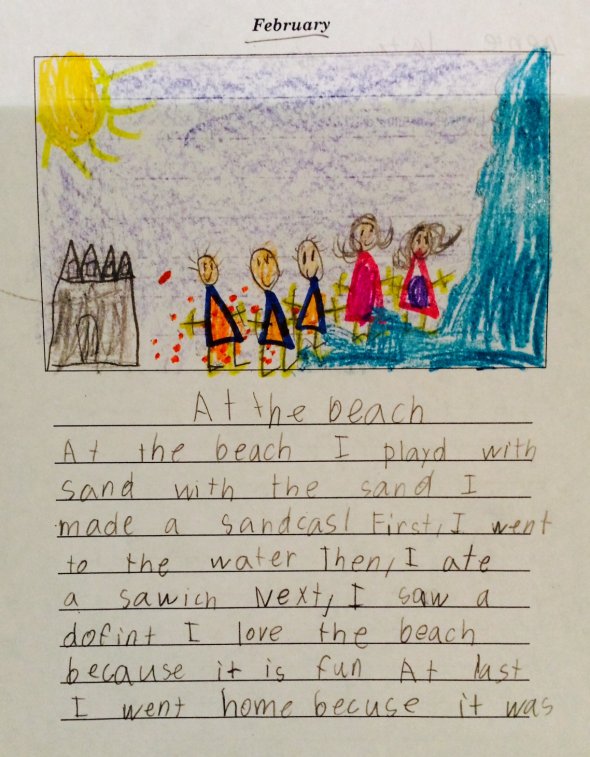 February
At the beach
At the beach I playd with
sand with the sand I
made a sandcasl First, I went
to the water Then, I ate
a sawich Next, I saw a
dofint I love the beach
because it is fun At last
I went home becuse it was